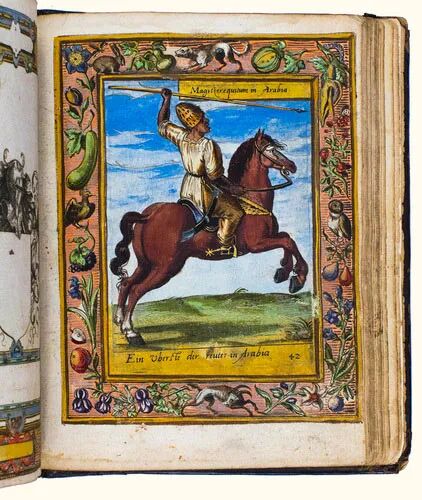 Magister equitum in Arabia
Ein Oberste der reuter in Arabia 42